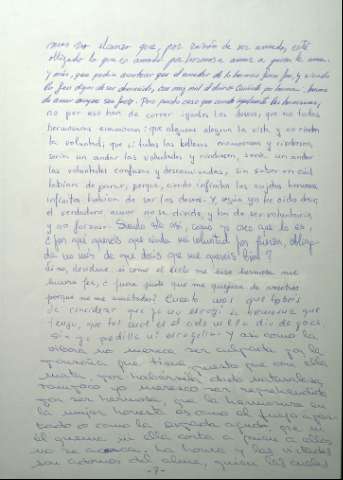 mas no alcanzo que, por razón de ser amado, esté
obligado lo que es amado por hermoso a amar a quien le ama.
Y más, que podría acontecer que el amador de lo hermoso fuese feo, y siendo
lo feo digno de ser aborrecido, cae muy mal el decir Quiérote por hermosa: hasme
de amar aunque sea feo. Pero puesto caso que corran igualmente las hermosuras,
no por eso han de correr iguales los deseos, que no todas
hermosuras enamoran: que algunas alegran la vista y no rinden
la voluntad; que si todas las bellezas enamorasen y rindiesen,
sería un andar las voluntades
las voluntades confusas y descaminadas, sin saber en cuál
habían de parar, porque, siendo infinitos los sujetos hermosos,
infinitos habían de ser los deseos. Y, según yo he oído decir,
el verdadero amor no se divide, y ha de ser voluntario,
y no forzoso. Siendo esto así, como yo creo que lo es,
¿por qué queréis que rinda mi voluntad por fuerza, obliga-
da no más de que decís que me queréis bien?
Si no, decidme: si como el cielo me hizo hermosa me
hiciera fea, ¿fuera justo que me quejara de vosotros
porque no me amábades? Cuanto más que habéis
de considerar que yo no escogí la hermosura que
tengo, que tal cual es el cielo me la dio de gracia
sin yo pedilla ni escogella. Y así como la
víbora no merece ser culpada por la
ponzoña que tiene, puesto que con ella
mata, por habérsela dado naturaleza,
tampoco yo merezco ser reprehendida
por ser hermosa, que la hermosura en
la mujer honesta es como el fuego apar-
tado o como la espada aguda, que ni
él quema ni ella corta a quien a ellos
no se acerca. La honra y las virtudes
son adornos del alma, sin las cuales
-7-